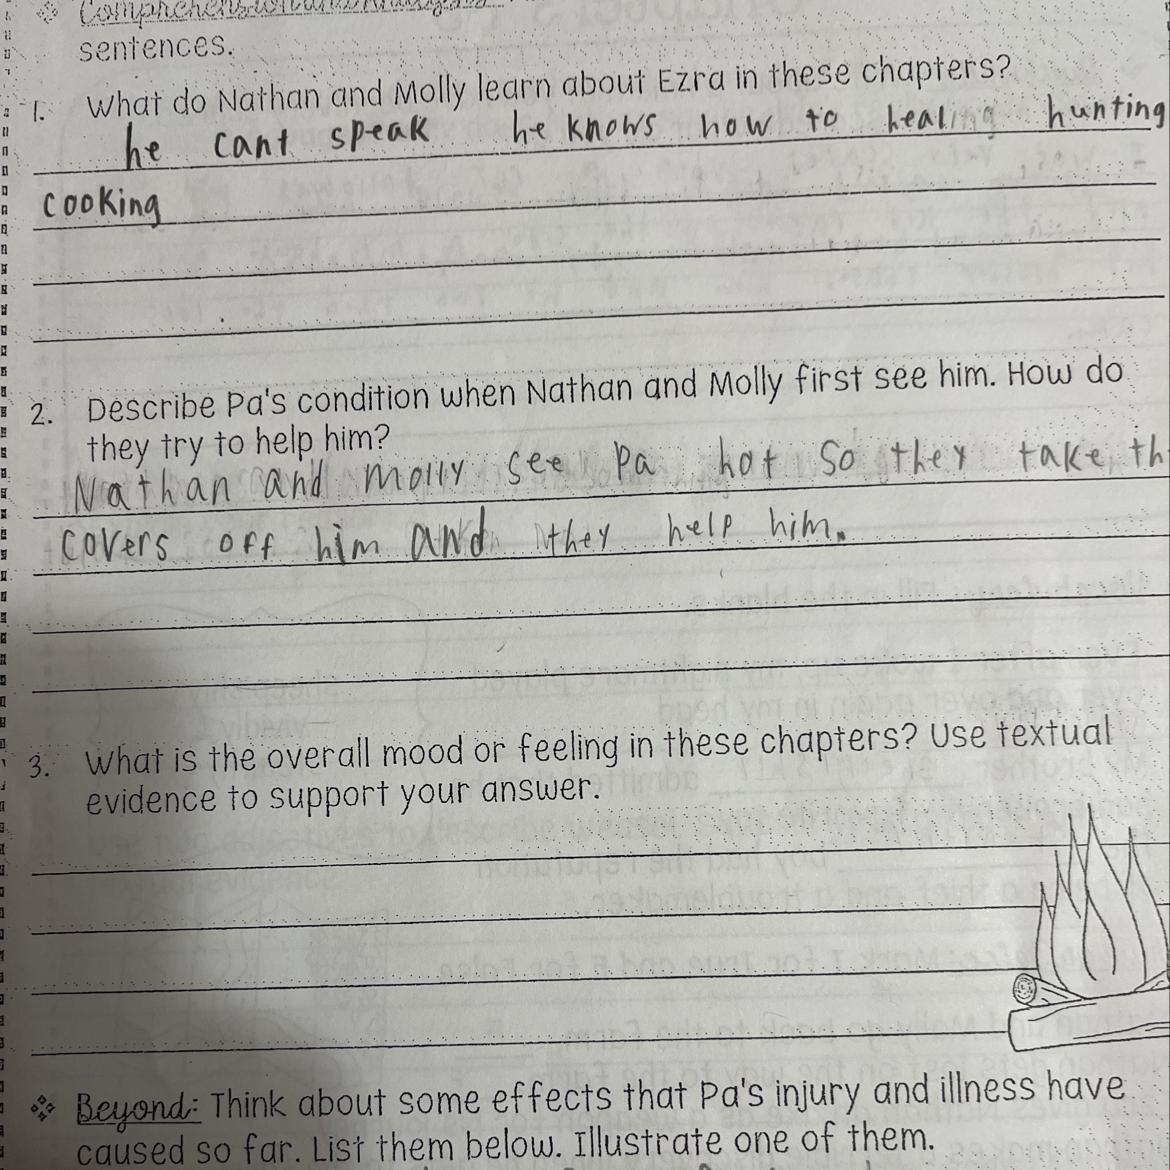 Comprehension and Analysis
sentences.
1. What do Nathan and Molly learn about Ezra in these chapters?
he cant speak he knows how to healing hunting
cooking
2. Describe Pa's condition when Nathan and Molly first see him. How do
they try to help him?
Nathan and molly see Pa hot so they take th
covers off him and they help him.
3. What is the overall mood or feeling in these chapters? Use textual
evidence to support your answer.
Beyond: Think about some effects that Pa's injury and illness have
caused so far. List them below. Illustrate one of them.